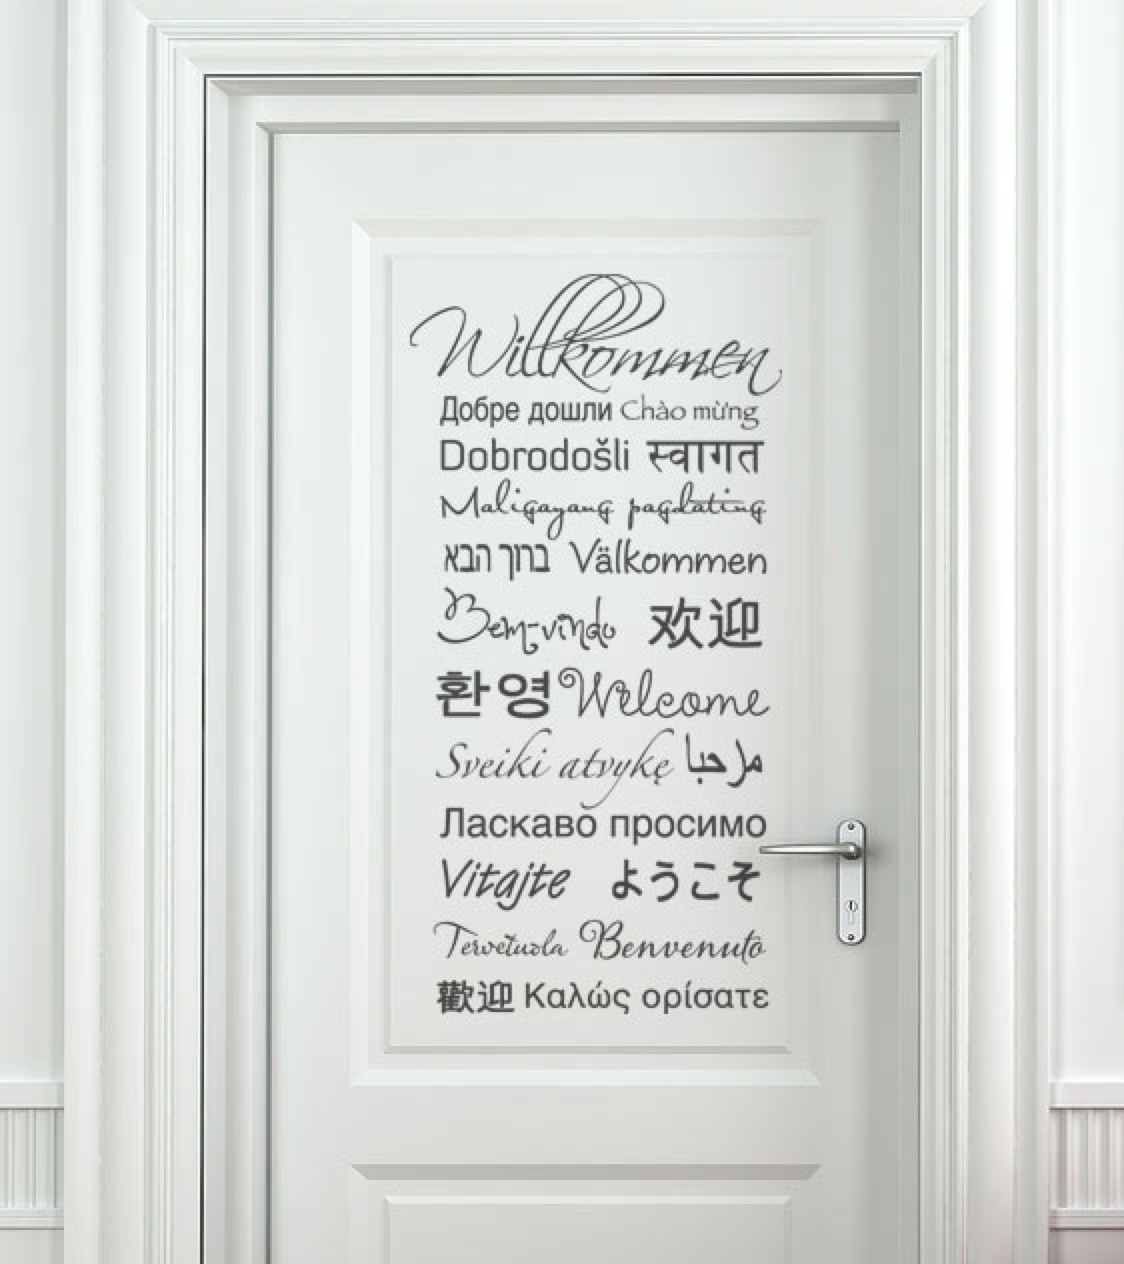 Willkommen
Добре дошли Chào mừng
Dobrodošli स्वागत
Maligayang pagdating
ברוך הבא Välkommen
Bem-vindo 欢迎
환영 Welcome
Sveiki atvykę مرحبا
Ласкаво просимо
Vitajte ようこそ
Tervetuola Benvenuto
歡迎 Καλώς ορίσατε